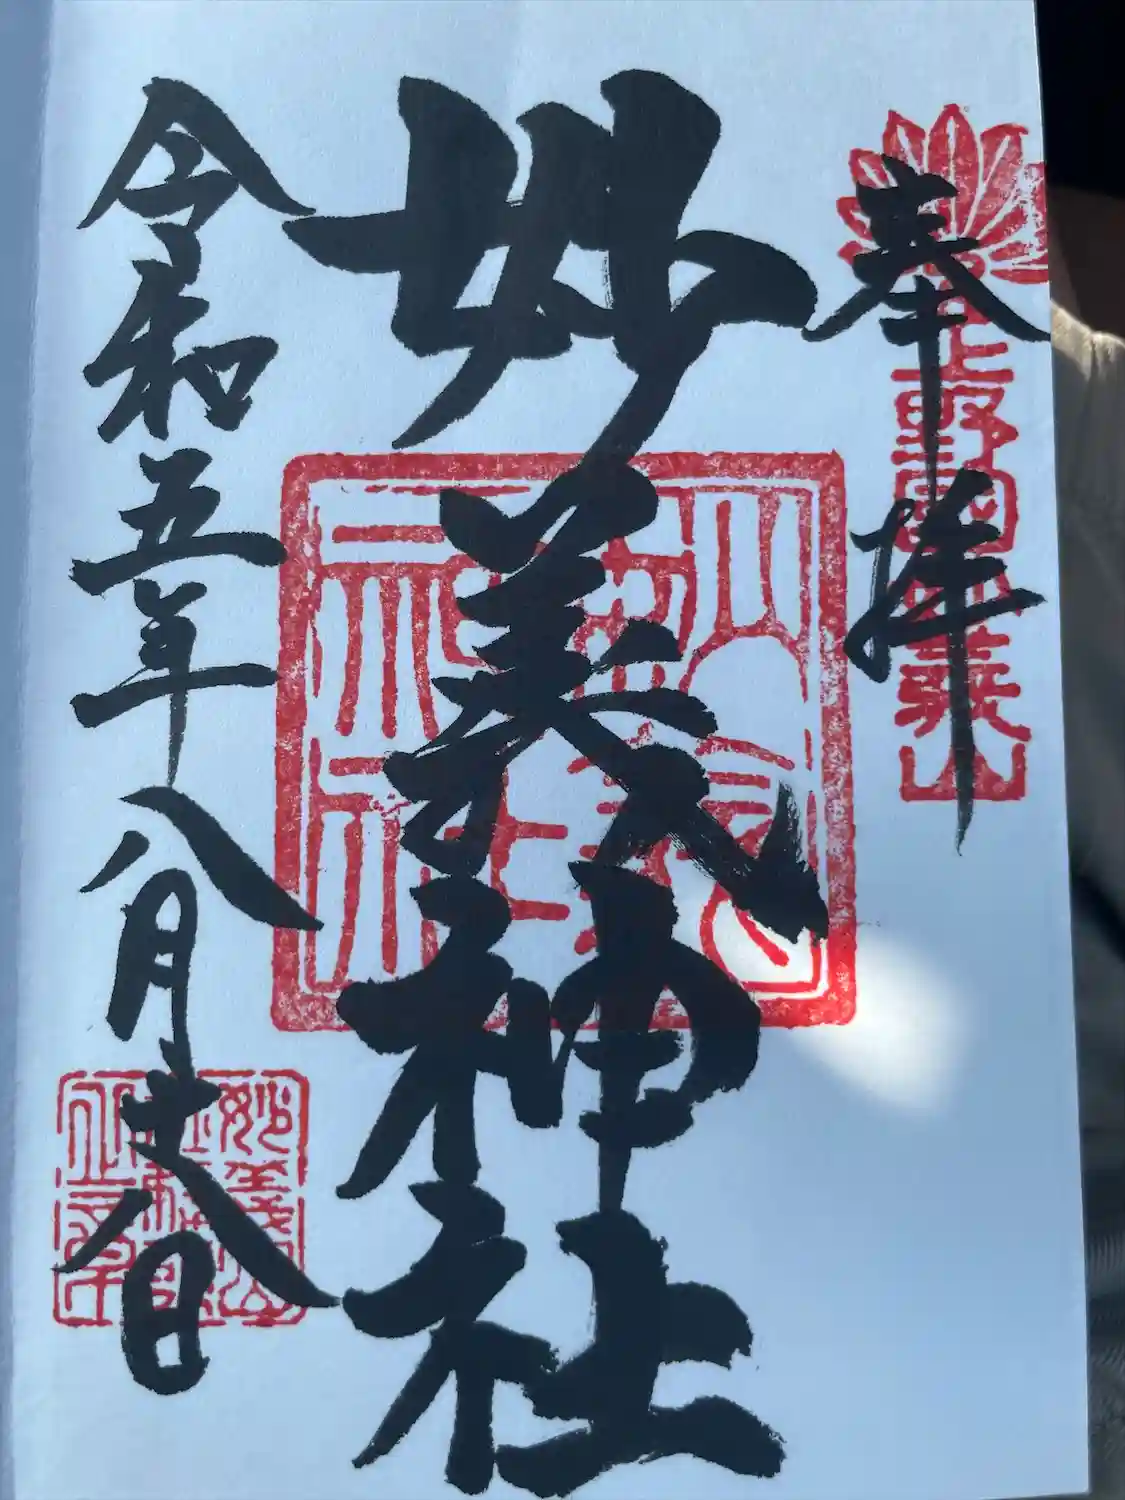 奉拝
上野國妙義山
妙義神社
妙義神社
令和五年八月十八日